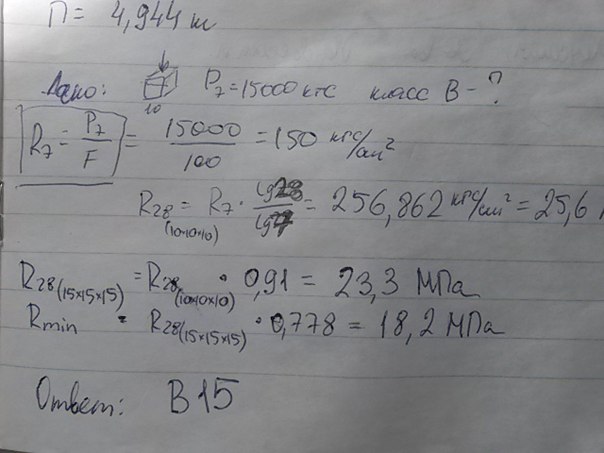 П = 4,944 м
Дано: 10 P₇ = 15000 кгс класс В - ?
R₇ = P₇/F = 15000/100 = 150 кгс/см²
R₂₈ (10×10×10) = R₇ · lg28/lg7 = 256,862 кгс/см² = 25,6
R₂₈(15×15×15) = R₂₈(10×10×10) · 0,91 = 23,3 МПа
Rmin = R₂₈(15×15×15) · 0,778 = 18,2 МПа
Ответ: В15